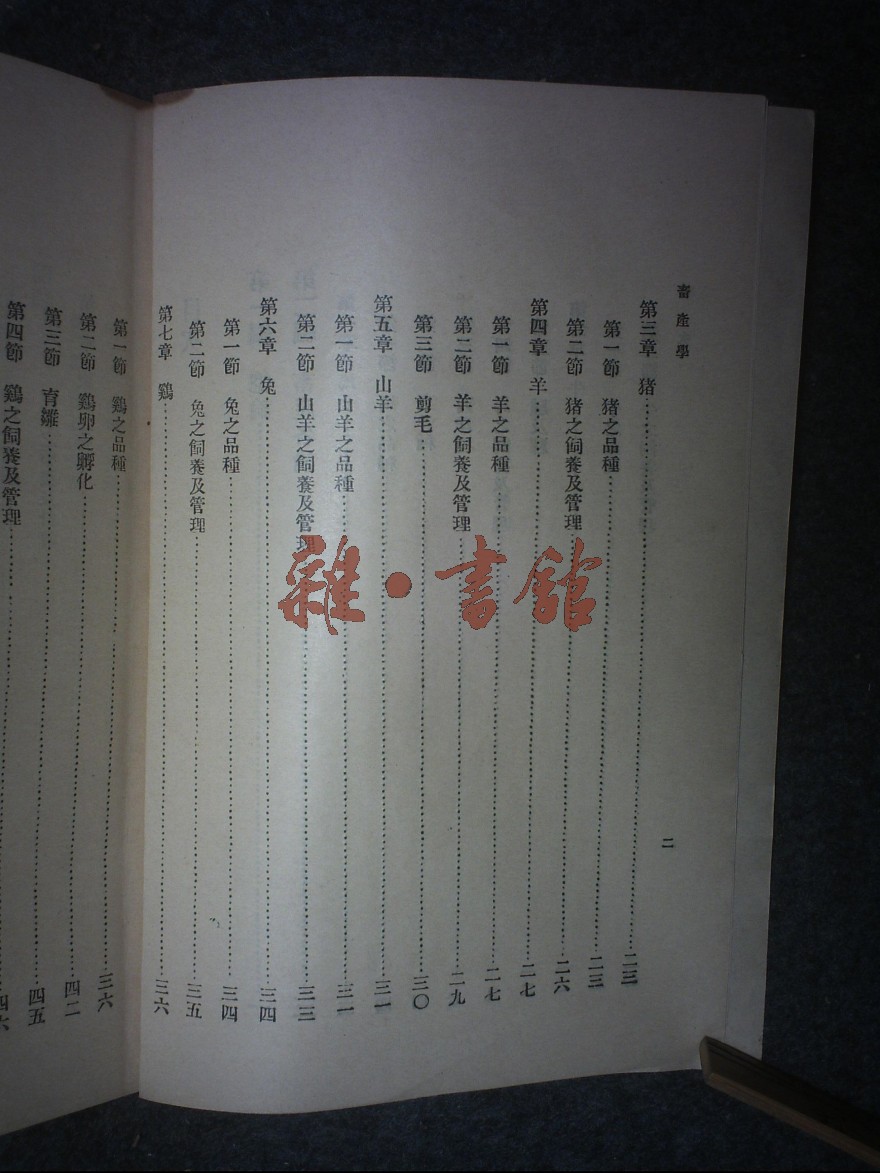 畜產學
二
第三章 猪……二三
第一節 猪之品種……二三
第二節 猪之飼養及管理……二六
第四章 羊……二七
第一節 羊之品種……二七
第二節 羊之飼養及管理……二九
第三節 剪毛……三〇
第五章 山羊……三一
第一節 山羊之品種……三一
第二節 山羊之飼養及管理……三三
第六章 兔……三四
第一節 兔之品種……三四
第二節 兔之飼養及管理……三五
第七章 鷄……三六
第一節 鷄之品種……三六
第二節 鷄卵之孵化……四二
第三節 育雛……四五
第四節 鷄之飼養及管理……四六
雜·書館